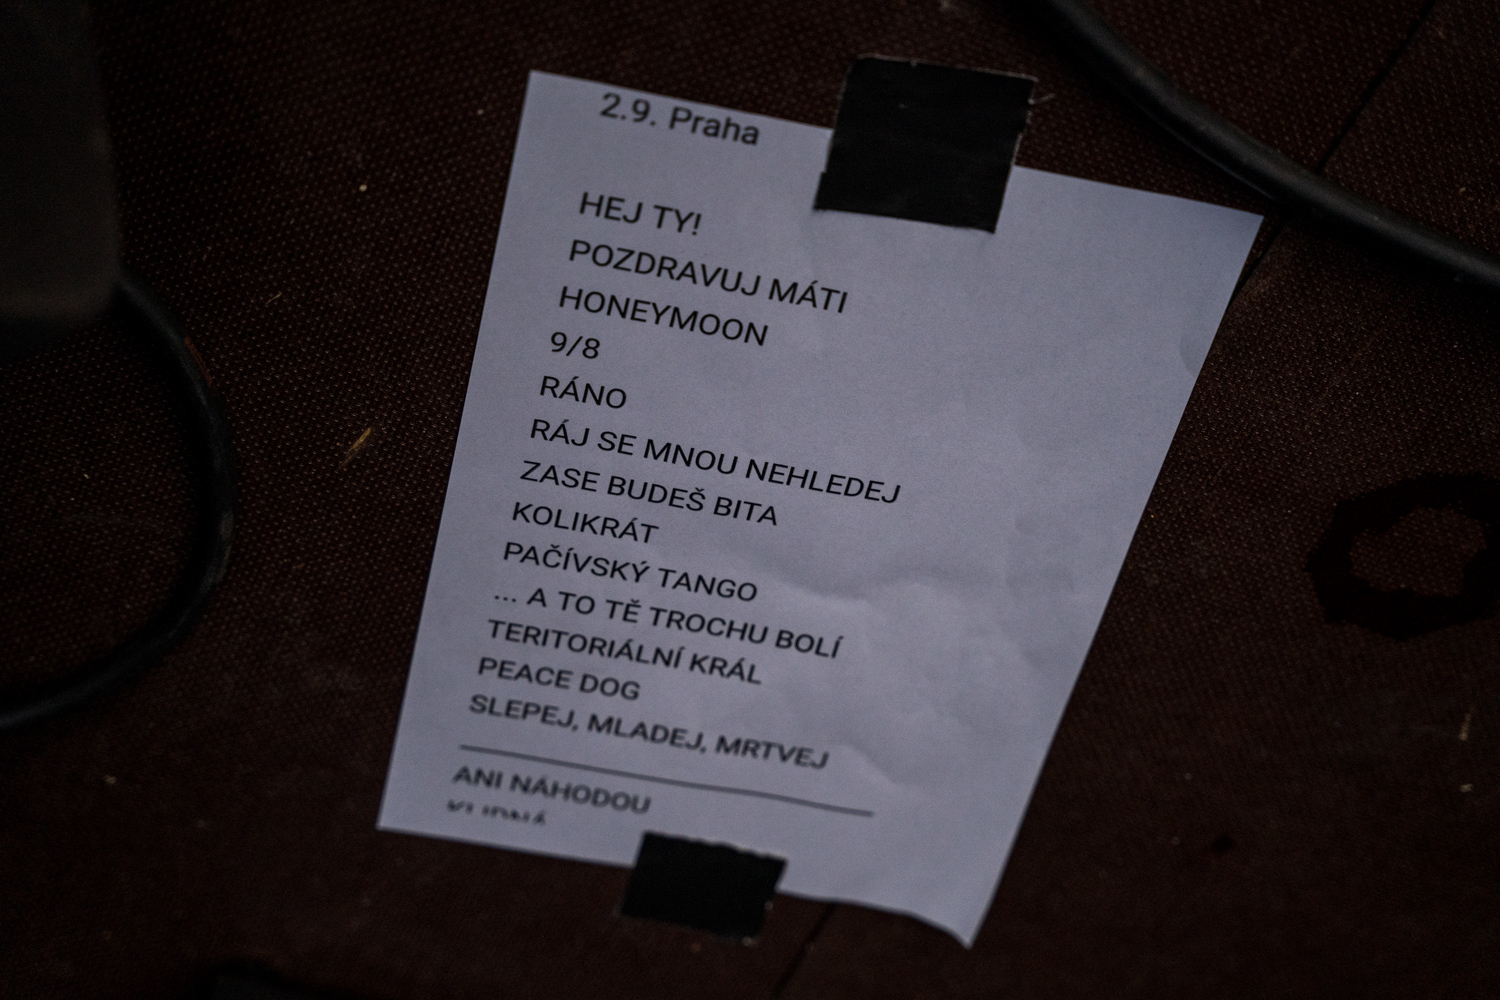 2.9. Praha
HEJ TY!
POZDRAVUJ MÁTI
HONEYMOON
9/8
RÁNO
RÁJ SE MNOU NEHLEDEJ
ZASE BUDEŠ BITA
KOLIKRÁT
PAČÍVSKÝ TANGO
... A TO TĚ TROCHU BOLÍ
TERITORIÁLNÍ KRÁL
PEACE DOG
SLEPEJ, MLADEJ, MRTVEJ
ANI NÁHODOU